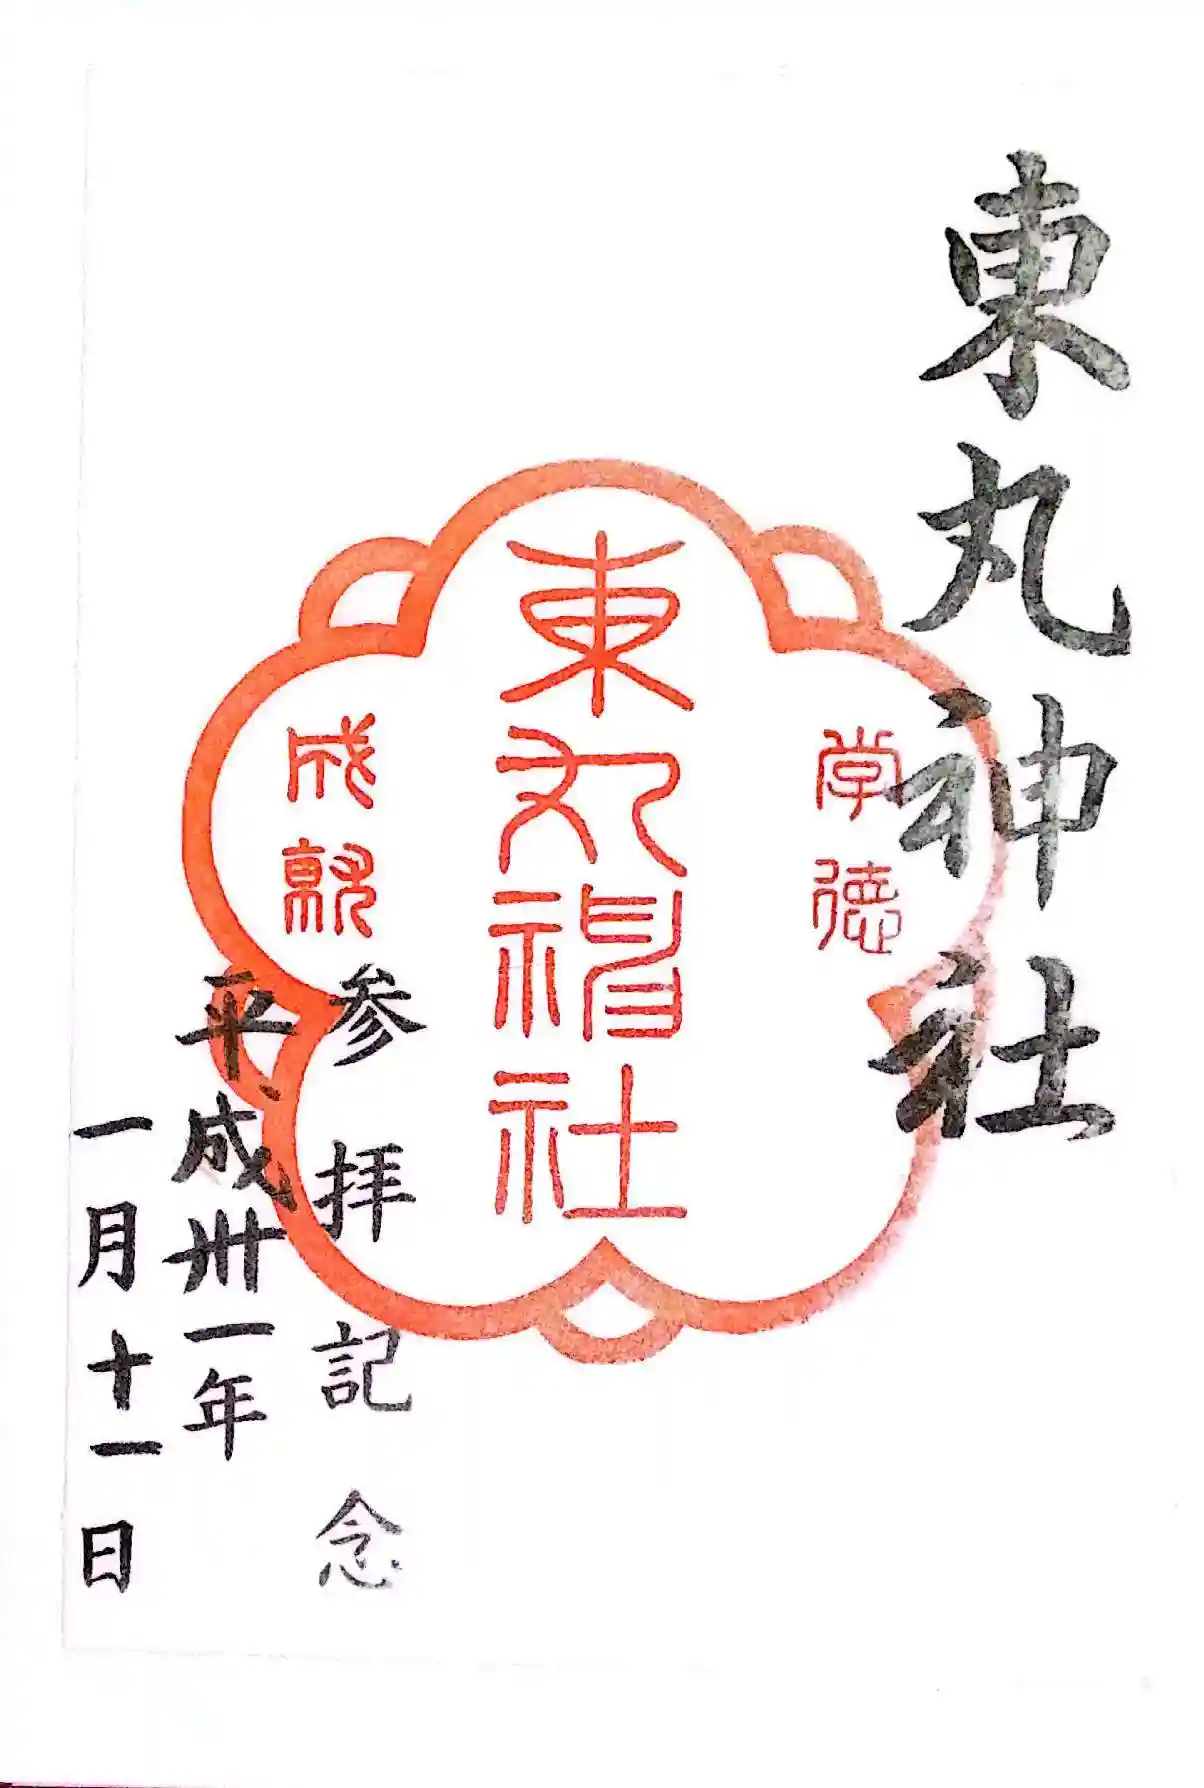 東丸神社
学徳
東丸神社
成就
参拝記念
平成丗一年
一月十一日